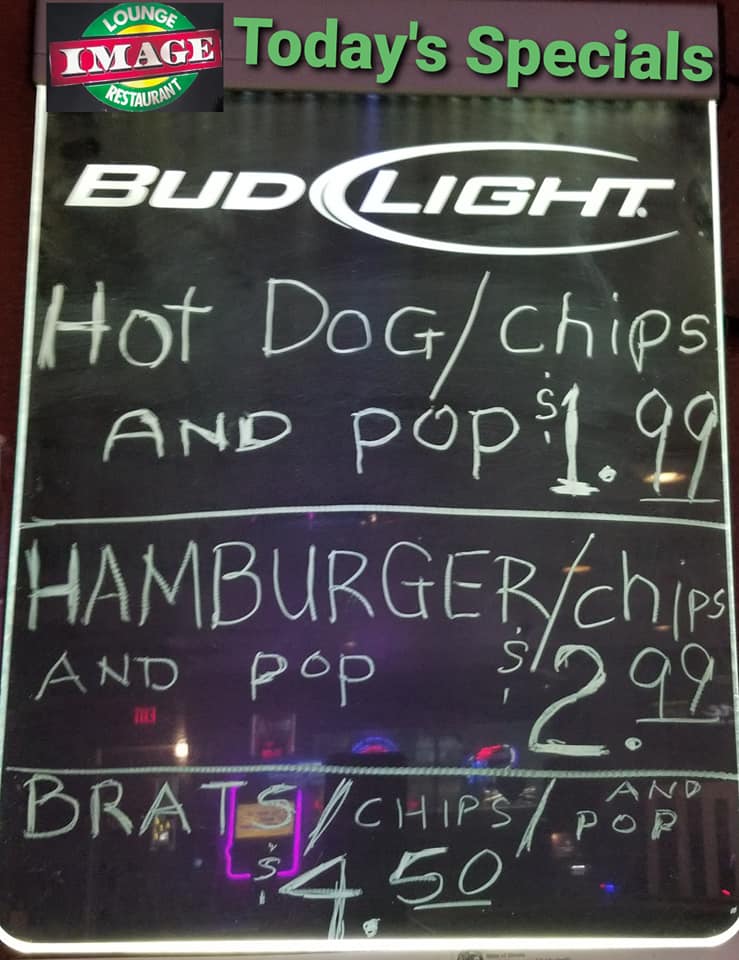 LOUNGE
IMAGE
RESTAURANT
Today's Specials
BUD LIGHT.
Hot Dog/chips
AND pop $1.99
HAMBURGER/chips
AND pop $2.99
BRATS/CHIPS/AND POP
$4.50